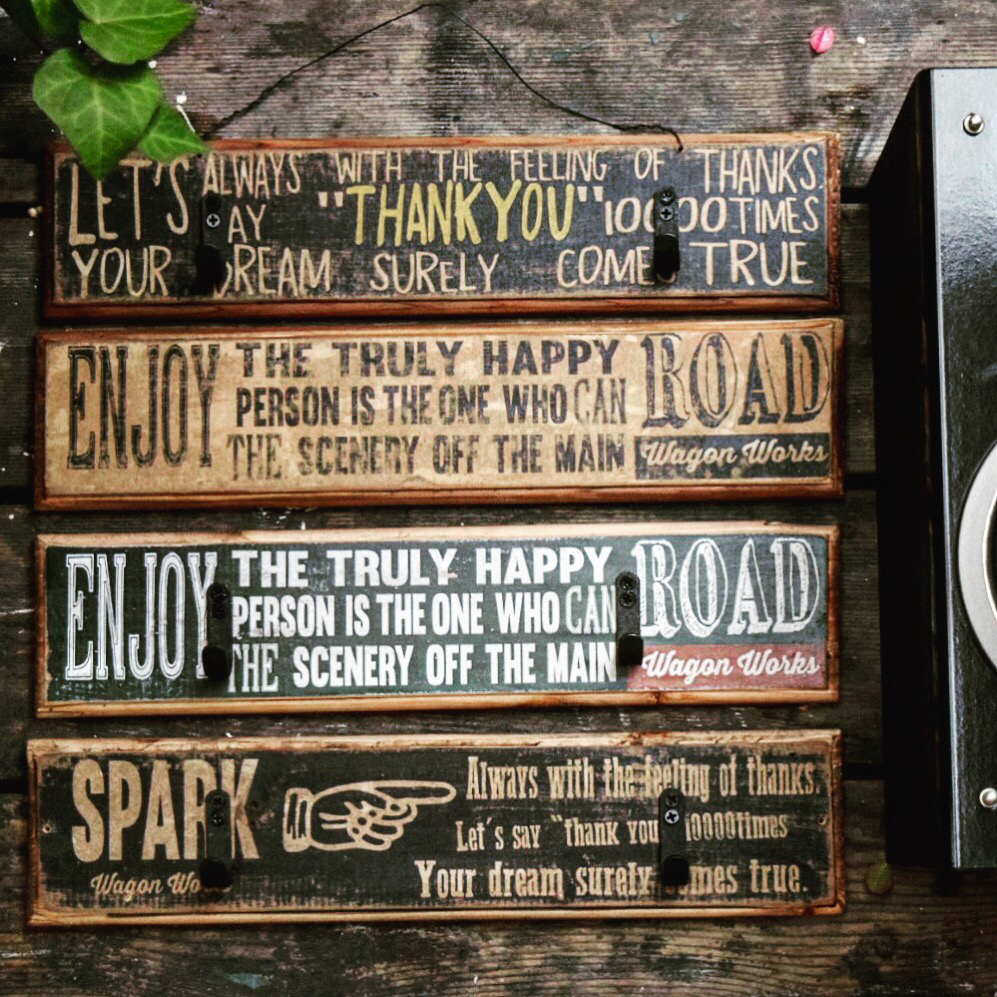 LET'S ALWAYS WITH THE FEELING OF THANKS.
AY "THANK YOU" TIMES
YOUR DREAM SURELY COME TRUE
ENJOY THE TRULY HAPPY ROAD
PERSON IS THE ONE WHO CAN
THE SCENERY OFF THE MAIN Wagon Works
ENJOY THE TRULY HAPPY ROAD
PERSON IS THE ONE WHO CAN
THE SCENERY OFF THE MAIN Wagon Works
SPARK Always with the feeling of thanks.
Let's say "thank you 10000times
Wagon Wo Your dream surely mes true.